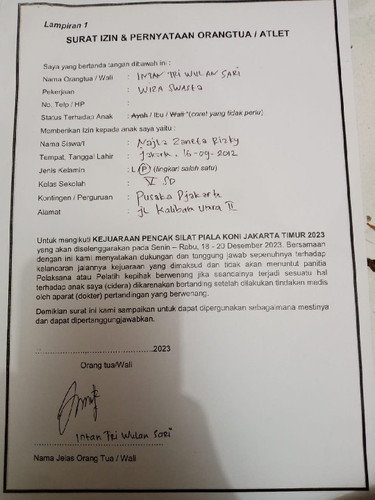 Lampiran 1
SURAT IZIN & PERNYATAAN ORANGTUA / ATLET
Saya yang bertanda tangan dibawah ini :
Nama Orangtua / Wali : INTAN TRI WULAN SARI
Pekerjaan : WIRA SWASTA
No. Telp / HP :
Status Terhadap Anak : Ayah / Ibu / Wali *(coret yang tidak perlu)
Memberikan Izin kepada anak saya yaitu :
Nama Siswa/i : Najla Zaneta Rizky
Tempat, Tanggal Lahir : Jakarta, 16-09-2012
Jenis Kelamin : L / P (lingkari salah satu)
Kelas Sekolah : V SD
Kontingen / Perguruan : Pusaka Djakarta
Alamat : JL Kalibaru Utara II
Untuk mengikuti KEJUARAAN PENCAK SILAT PIALA KONI JAKARTA TIMUR 2023
yang akan diselenggarakan pada Senin – Rabu, 18 - 20 Desember 2023. Bersamaan
dengan ini kami menyatakan dukungan dan tanggung jawab sepenuhnya terhadap
kelancaran jalannya kejuaraan yang dimaksud dan tidak akan menuntut panitia
Pelaksana atau Pelatih kepihak berwenang jika seandainya terjadi sesuatu hal
terhadap anak saya (cidera) dikarenakan bertanding setelah dilakukan tindakan medis
oleh aparat (dokter) pertandingan yang berwenang.
Demikian surat ini kami sampaikan untuk dapat dipergunakan sebagaimana mestinya
dan dapat dipertanggungjawabkan.
..................................2023
Orang tua/Wali
Intan Tri Wulan Sari
Nama Jelas Orang Tua / Wali